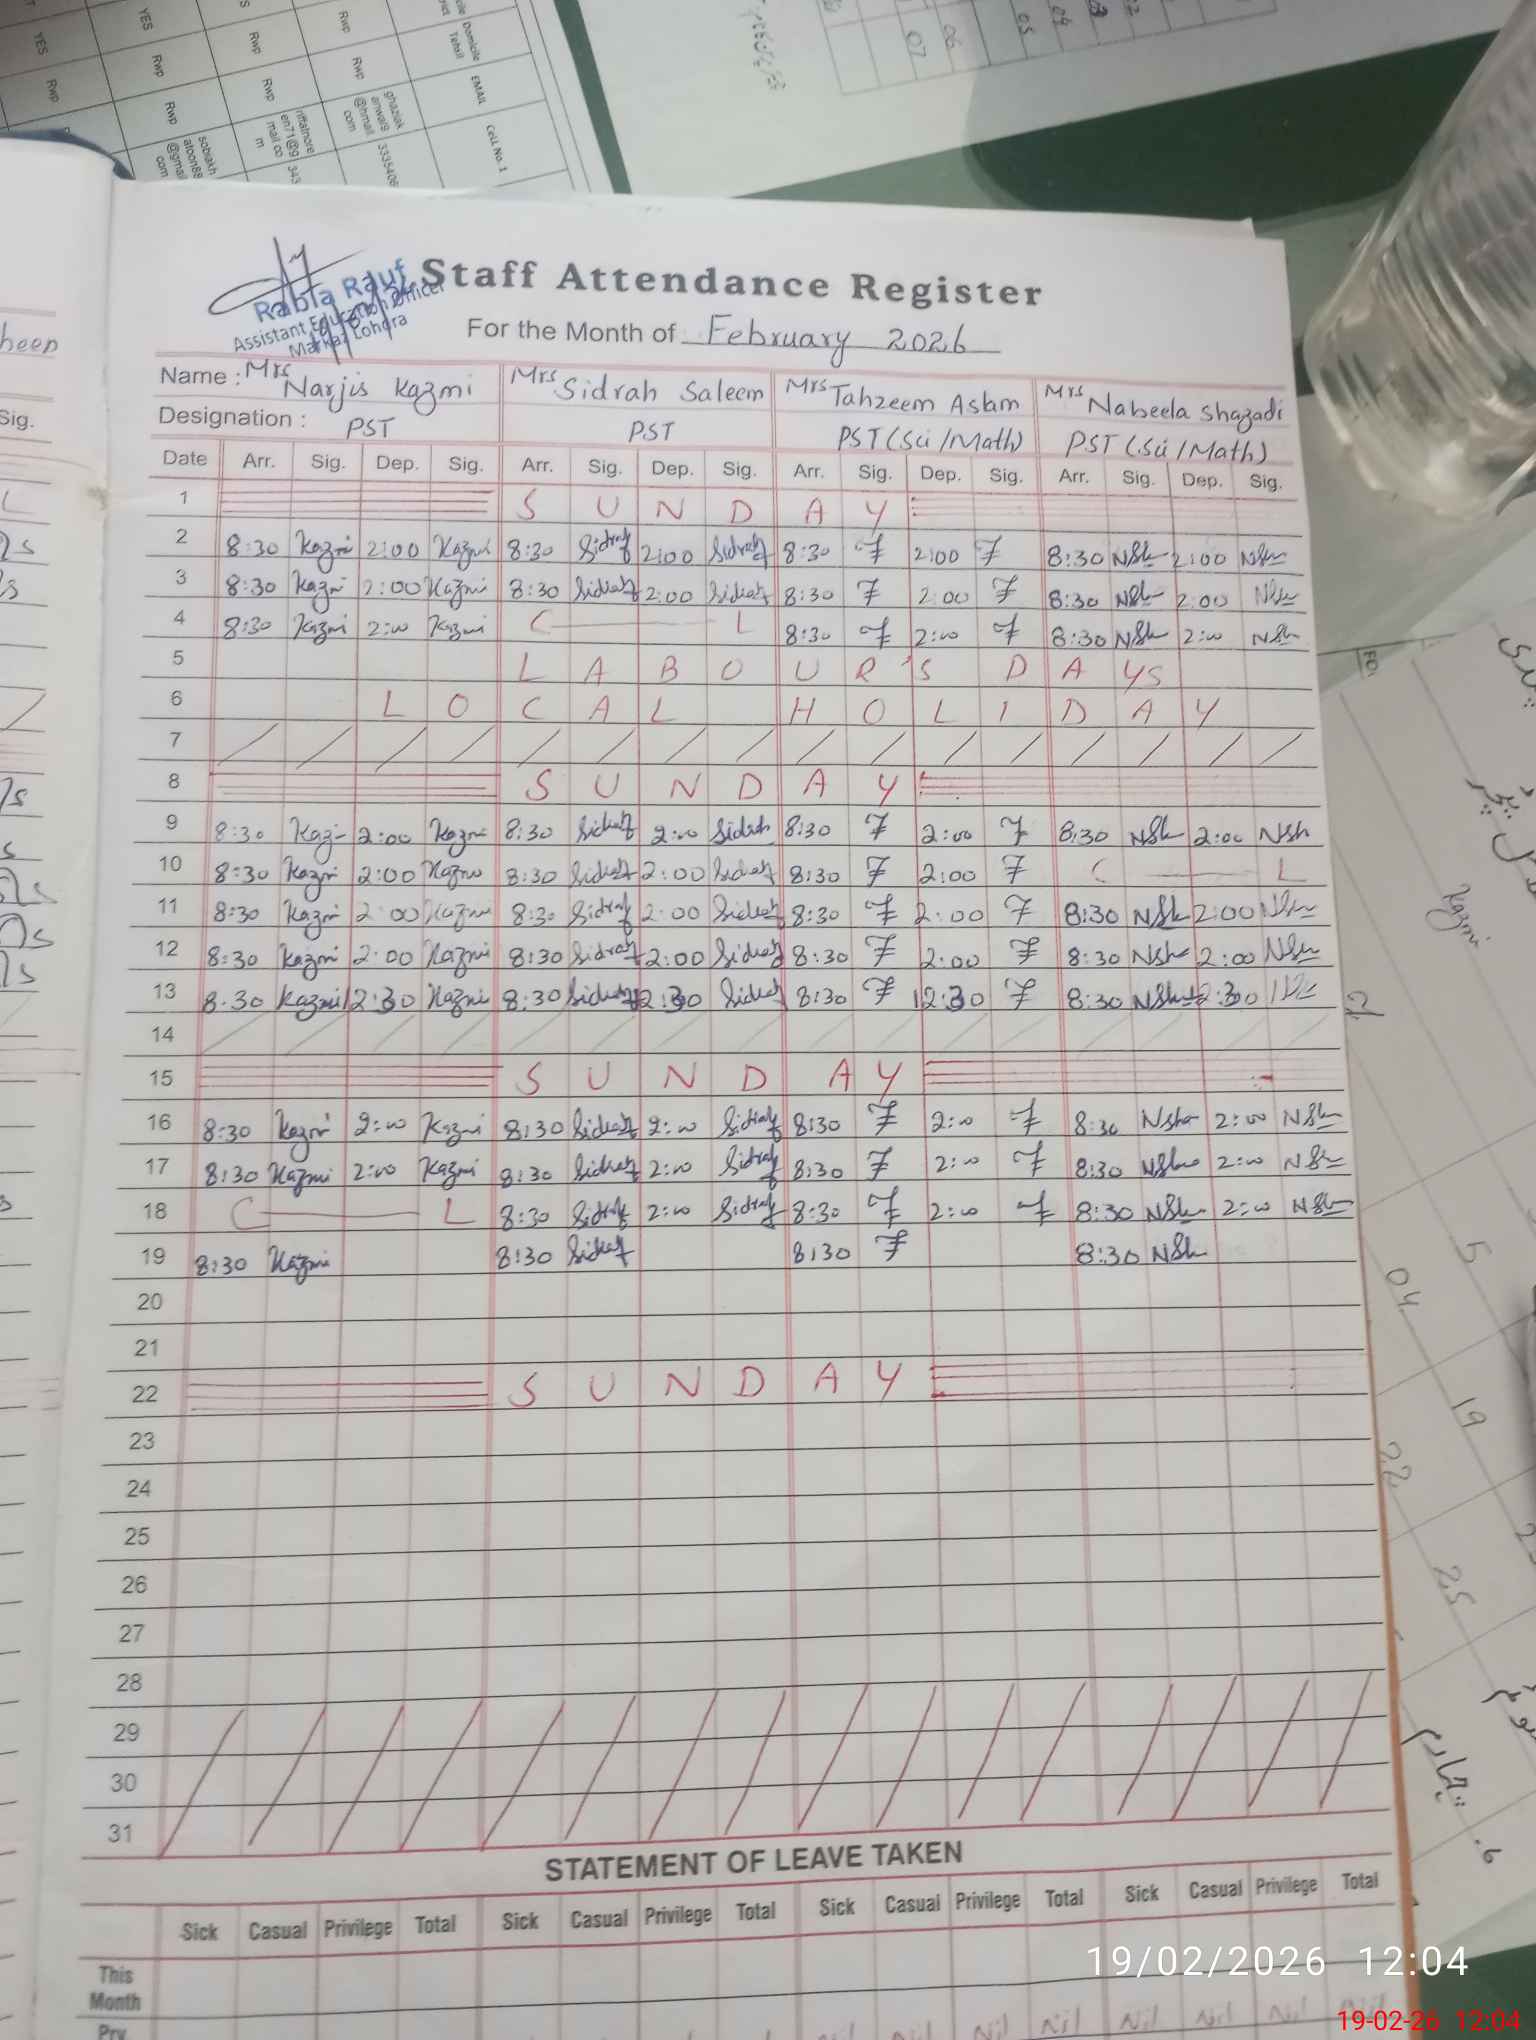 Rabia Rauf
Assistant Education Officer
Markaz Lohdra
Staff Attendance Register
For the Month of February 2026
Name : Mrs Narjis Kazmi Mrs Sidrah Saleem Mrs Tahzeem Aslam Mrs Nabeela Shazadi
Designation : PST PST PST (Sci /Math) PST (Sci /Math)
Date Arr. Sig. Dep. Sig. Arr. Sig. Dep. Sig. Arr. Sig. Dep. Sig. Arr. Sig. Dep. Sig.
1 S U N D A Y
2 8:30 Kazmi 2:00 Kazmi 8:30 Sidrah 2:00 Sidrah 8:30 F 2:00 F 8:30 NSh 2:00 NSh
3 8:30 Kazmi 2:00 Kazmi 8:30 Sidrah 2:00 Sidrah 8:30 F 2:00 F 8:30 NSh 2:00 NSh
4 8:30 Kazmi 2:00 Kazmi C L 8:30 F 2:00 F 8:30 NSh 2:00 NSh
5 L A B O U R 'S D A YS
6 L O C A L H O L I D A Y
7 / / / / / / / / / / / / / / / /
8 S U N D A Y
9 8:30 Kazmi 2:00 Kazmi 8:30 Sidrah 2:00 Sidrah 8:30 F 2:00 F 8:30 NSh 2:00 NSh
10 8:30 Kazmi 2:00 Kazmi 8:30 Sidrah 2:00 Sidrah 8:30 F 2:00 F C L
11 8:30 Kazmi 2:00 Kazmi 8:30 Sidrah 2:00 Sidrah 8:30 F 2:00 F 8:30 NSh 2:00 NSh
12 8:30 Kazmi 2:00 Kazmi 8:30 Sidrah 2:00 Sidrah 8:30 F 2:00 F 8:30 NSh 2:00 NSh
13 8:30 Kazmi 12:30 Kazmi 8:30 Sidrah 12:30 Sidrah 8:30 F 12:30 F 8:30 NSh 12:30
14
15 S U N D A Y
16 8:30 Kazmi 2:00 Kazmi 8:30 Sidrah 2:00 Sidrah 8:30 F 2:00 F 8:30 NSh 2:00 NSh
17 8:30 Kazmi 2:00 Kazmi 8:30 Sidrah 2:00 Sidrah 8:30 F 2:00 F 8:30 NSh 2:00 NSh
18 C L 8:30 Sidrah 2:00 Sidrah 8:30 F 2:00 F 8:30 NSh 2:00 NSh
19 8:30 Kazmi 8:30 Sidrah 8:30 F 8:30 NSh
20
21
22 S U N D A Y
23
24
25
26
27
28
29
30
31
STATEMENT OF LEAVE TAKEN
Sick Casual Privilege Total Sick Casual Privilege Total Sick Casual Privilege Total Sick Casual Privilege Total
This Month
Prv. Nil Nil Nil Nil Nil Nil Nil
19/02/2026 12:04
19-02-26 12:04